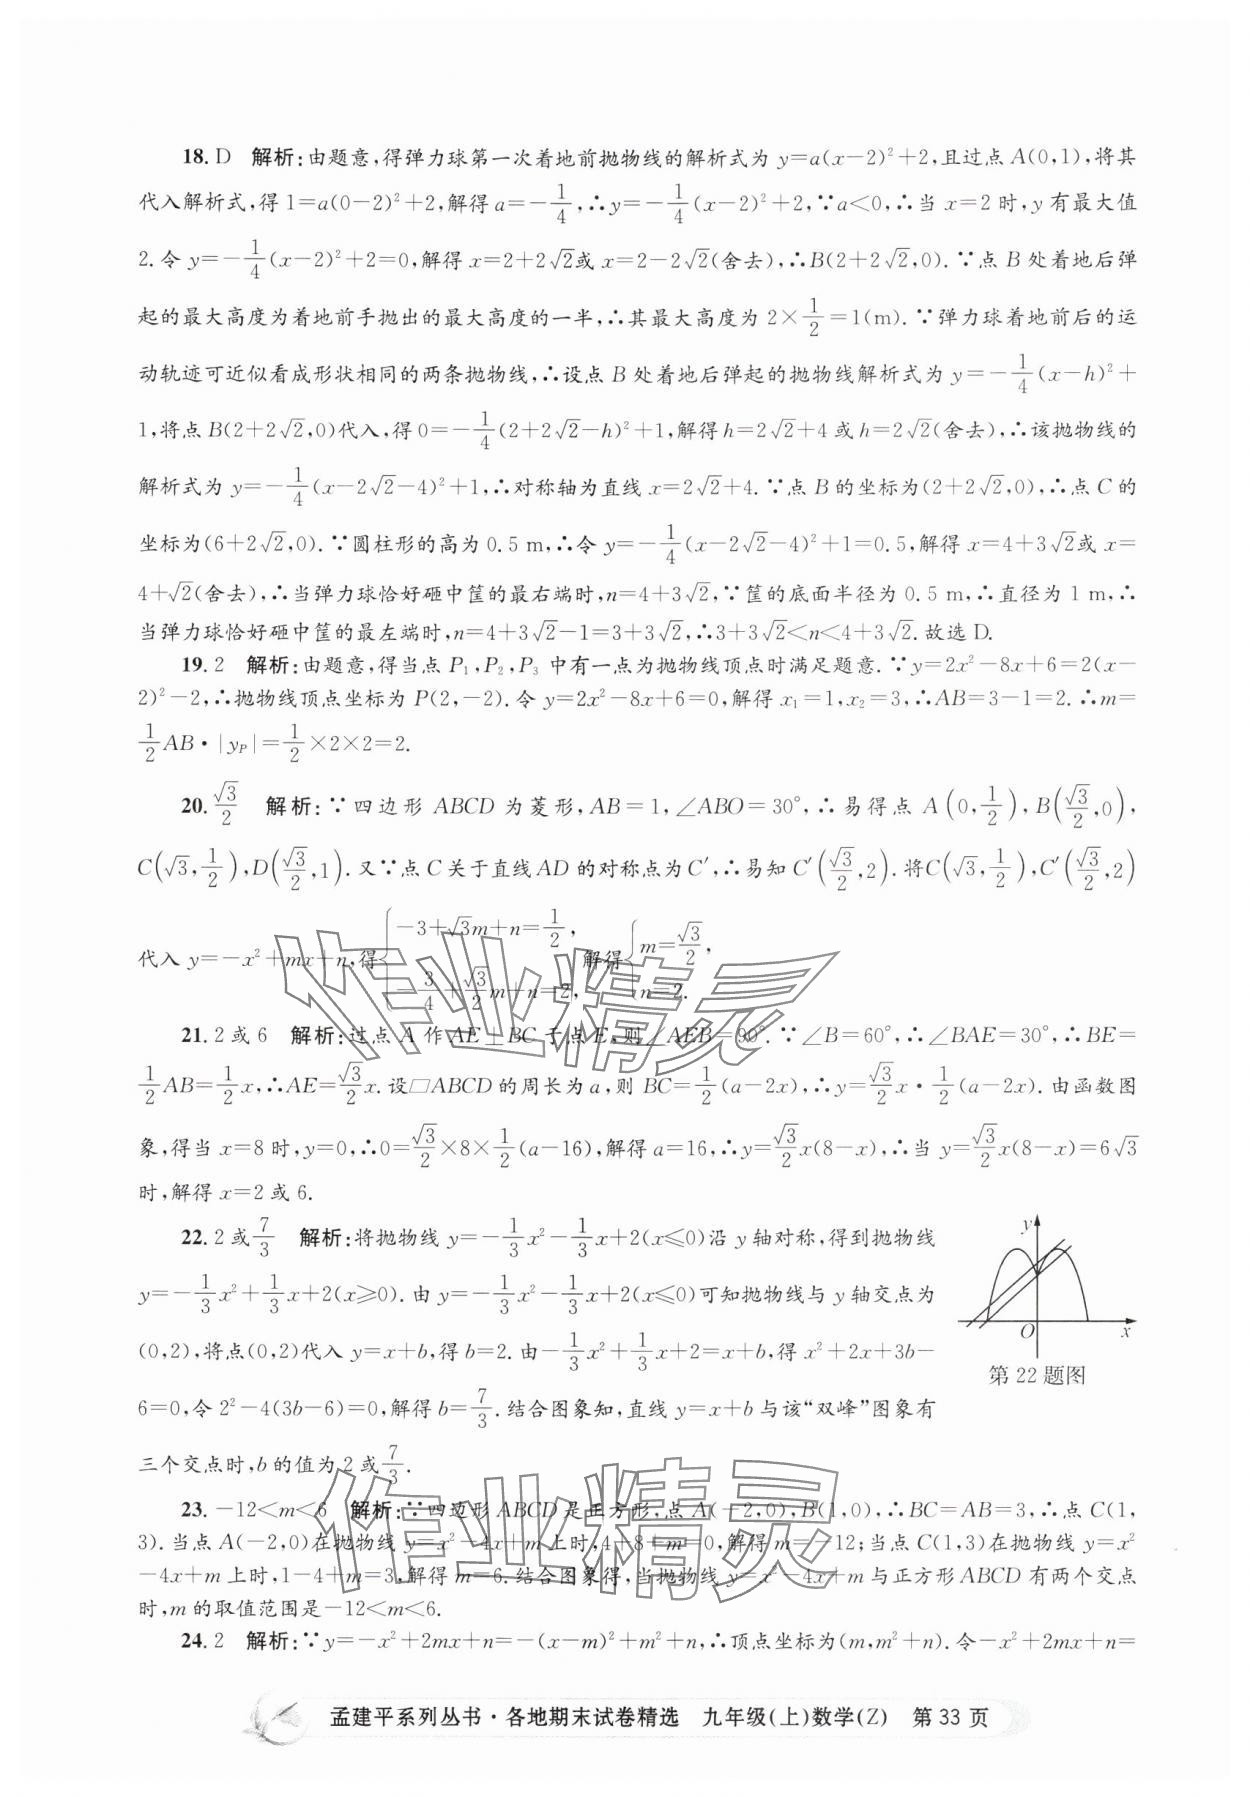 18. D　解析:由题意,得弹力球第一次着地前抛物线的解析式为 y=a(x-2)²+2,且过点 A(0,1),将其
代入解析式,得 1=a(0-2)²+2,解得 a=-1/4,∴y=-1/4(x-2)²+2,∵a<0,∴当 x=2 时,y 有最大值
2.令 y=-1/4(x-2)²+2=0,解得 x=2+2√2或 x=2-2√2(舍去),∴B(2+2√2,0).∵点 B 处着地后弹
起的最大高度为着地前手抛出的最大高度的一半,∴其最大高度为 2×1/2=1(m).∵弹力球着地前后的运
动轨迹可近似看成形状相同的两条抛物线,∴设点 B 处着地后弹起的抛物线解析式为 y=-1/4(x-h)²+
1,将点 B(2+2√2,0)代入,得 0=-1/4(2+2√2-h)²+1,解得 h=2√2+4 或 h=2√2(舍去),∴该抛物线的
解析式为 y=-1/4(x-2√2-4)²+1,∴对称轴为直线 x=2√2+4.∵点 B 的坐标为(2+2√2,0),∴点 C 的
坐标为(6+2√2,0).∵圆柱形的高为 0.5 m,∴令 y=-1/4(x-2√2-4)²+1=0.5,解得 x=4+3√2或 x=
4+√2(舍去),∴当弹力球恰好砸中筐的最右端时,n=4+3√2,∵筐的底面半径为 0.5 m,∴直径为 1 m,∴
当弹力球恰好砸中筐的最左端时,n=4+3√2-1=3+3√2,∴3+3√2<n<4+3√2.故选 D.
19. 2　解析:由题意,得当点 P₁,P₂,P₃ 中有一点为抛物线顶点时满足题意.∵y=2x²-8x+6=2(x-
2)²-2,∴抛物线顶点坐标为 P(2,-2).令 y=2x²-8x+6=0,解得 x₁=1,x₂=3,∴AB=3-1=2.∴m=
1/2AB·|y_P|=1/2×2×2=2.
20. √3/2　解析:∵四边形 ABCD 为菱形,AB=1,∠ABO=30°,∴易得点 A(0,1/2),B(√3/2,0),
C(√3,1/2),D(√3/2,1).又∵点 C 关于直线 AD 的对称点为 C′,∴易知 C′(√3/2,2).将C(√3,1/2),C′(√3/2,2)
代入 y=-x²+mx+n,得{-3+√3m+n=1/2,-3/4+√3/2m+n=2,解得{m=√3/2,n=2.
21. 2 或 6　解析:过点 A 作 AE⊥BC 于点 E,则∠AEB=90°.∵∠B=60°,∴∠BAE=30°,∴BE=
1/2AB=1/2x,∴AE=√3/2x.设▱ABCD 的周长为 a,则 BC=1/2(a-2x),∴y=√3/2x·1/2(a-2x).由函数图
象,得当 x=8 时,y=0,∴0=√3/2×8×1/2(a-16),解得 a=16,∴y=√3/2x(8-x),∴当 y=√3/2x(8-x)=6√3
时,解得 x=2 或 6.
22. 2 或7/3　解析:将抛物线 y=-1/3x²-1/3x+2(x≤0)沿 y 轴对称,得到抛物线
y=-1/3x²+1/3x+2(x≥0).由 y=-1/3x²-1/3x+2(x≤0)可知抛物线与 y 轴交点为
(0,2),将点(0,2)代入 y=x+b,得 b=2.由-1/3x²+1/3x+2=x+b,得 x²+2x+3b-
6=0,令 2²-4(3b-6)=0,解得 b=7/3.结合图象知,直线 y=x+b 与该“双峰”图象有
三个交点时,b 的值为 2 或7/3.
y
O
x
第 22 题图
23. -12<m<6　解析:∵四边形 ABCD 是正方形,点 A(-2,0),B(1,0),∴BC=AB=3,∴点 C(1,
3).当点 A(-2,0)在抛物线 y=x²-4x+m 上时,4+8+m=0,解得 m=-12;当点 C(1,3)在抛物线 y=x²
-4x+m 上时,1-4+m=3,解得 m=6.结合图象得,当抛物线 y=x²-4x+m 与正方形 ABCD 有两个交点
时,m 的取值范围是-12<m<6.
24. 2　解析:∵y=-x²+2mx+n=-(x-m)²+m²+n,∴顶点坐标为(m,m²+n).令-x²+2mx+n=
作业精灵
作业精灵
孟建平系列丛书·各地期末试卷精选　九年级(上)数学(Z)　第 33 页